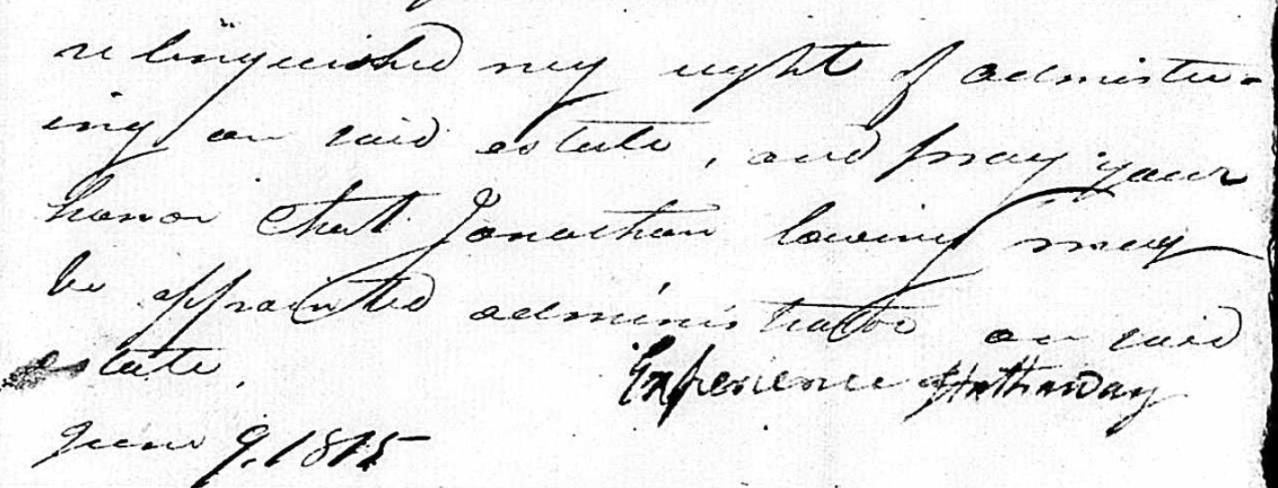 relinquished my right of administer-
ing on said estate, and pray your
honor that Jonathan loring may
be appointed administrator on said
estate.
Experience Hathaway
June 9. 1815